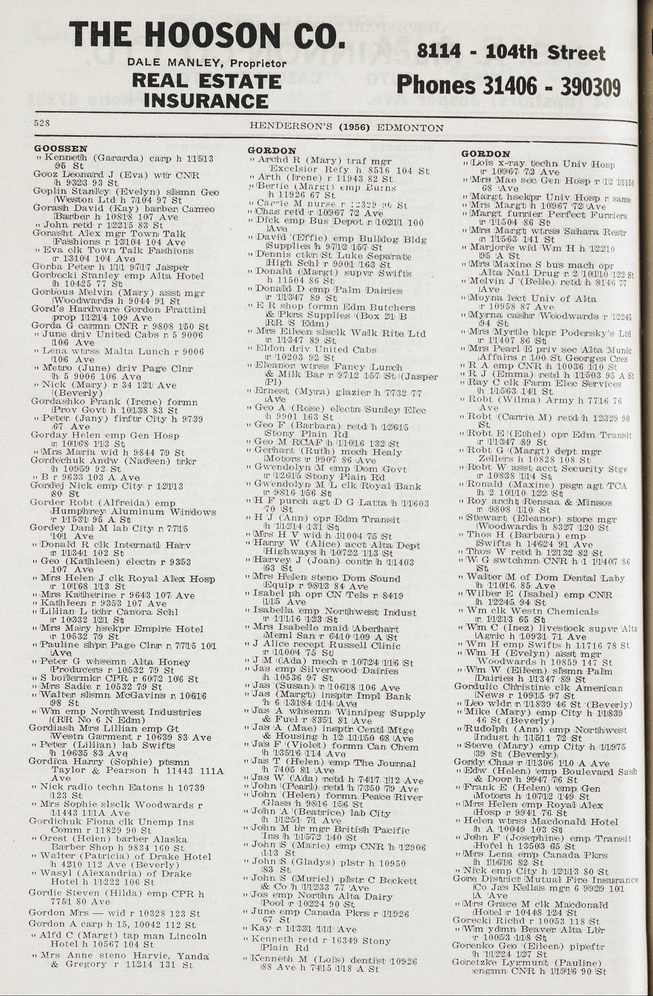 THE HOOSON CO.
DALE MANLEY, Proprietor
REAL ESTATE
INSURANCE
8114 - 104th Street
Phones 31406 - 390309
528
HENDERSON'S (1956) EDMONTON
GOOSSEN
" Kenneth (Gararda) carp h 11513
95 Ave
Gooz Leonard J (Eva) wtr CNR
h 9323 93 St
Goplin Stanley (Evelyn) slsmn Geo
Weston Ltd h 7104 97 St
Gorash David (Kay) barber Cameo
Barber h 10818 107 Ave
" John retd r 12215 83 St
Gorasht Alex mgr Town Talk
Fashions r 13104 104 Ave
" Eva clk Town Talk Fashions
r 13104 104 Ave
Gorba Peter h 111 9717 Jasper
Gorbecki Stanley emp Alta Hotel
h 10425 77 St
Gorbous Melvin (Mary) asst mgr
Woodwards h 9044 91 St
Gord's Hardware Gordon Frattini
prop 11214 109 Ave
Gorda G carmn CNR r 9808 150 St
" June driv United Cabs r 5 9006
106 Ave
" Lena wtrss Malta Lunch r 9006
106 Ave
" Metro (June) driv Page Clnr
h 5 9006 106 Ave
" Nick (Mary) r 34 121 Ave
(Beverly)
Gordashko Frank (Irene) formn
Prov Govt h 10138 83 St
" Peter (Jany) firftr City h 9739
67 Ave
Gorday Helen emp Gen Hosp
r 10168 113 St
" Mrs Maria wid h 9844 79 St
Gordechuk Andw (Nadeen) trkr
h 10959 92 St
" B r 9633 103 A Ave
Gordej Nick emp City r 12113
80 St
Gorder Robt (Alfreida) emp
Humphrey Aluminum Windows
r 11531 95 A St
Gordey Danl M lab City r 7715
101 Ave
" Donald R clk Internatl Harv
r 11341 102 St
" Geo (Kathleen) electn r 9353
107 Ave
" Mrs Helen J clk Royal Alex Hosp
r 10168 113 St
" Mrs Katherine r 9643 107 Ave
" Kathleen r 9353 107 Ave
" Lillian L tchr Canora Schl
r 10332 121 St
" Mrs Mary hsekpr Empire Hotel
r 10532 79 St
" Pauline shpr Page Clnr r 7715 101
Ave
" Peter G whsemn Alta Honey
Producers r 10532 79 St
" S boilermkr CPR r 6072 106 St
" Mrs Sadie r 10532 79 St
" Walter slsmn McGavins r 10616
98 St
" Wm emp Northwest Industries
(RR No 6 N Edm)
Gordiash Mrs Lillian emp Gt
Westn Garment r 10639 83 Ave
" Peter (Lillian) lab Swifts
h 10635 83 Ave
Gordica Harry (Sophie) ptsmn
Taylor & Pearson h 11443 111A
Ave
" Nick radio techn Eatons h 10739
123 St
" Mrs Sophie slsclk Woodwards r
11443 111A Ave
Gordichuk Fiona clk Unemp Ins
Comm r 11829 90 St
" Orest (Helen) barber Alaska
Barber Shop h 9834 160 St
" Walter (Patricia) of Drake Hotel
h 4210 112 Ave (Beverly)
" Wasyl (Alexandria) of Drake
Hotel h 11222 106 St
Gordie Steven (Hilda) emp CPR h
7751 80 Ave
Gordon Mrs — wid r 10328 123 St
Gordon A carp h 15, 10042 112 St
" Alfd C (Margt) tap man Lincoln
Hotel h 10567 104 St
" Mrs Anne steno Harvie, Yanda
& Gregory r 11214 131 St
GORDON
" Archd R (Mary) traf mgr
Excelsior Refy h 8516 104 St
" Arth (Irene) r 11943 82 St
" Bertie (Margt) emp Burns
h 11926 67 St
" Carrie M nurse r 12329 90 St
" Chas retd r 10967 72 Ave
" Dick emp Bus Depot r 10211 100
Ave
" David (Effie) emp Bulldog Bldg
Supplies h 9712 157 St
" Dennis ctkr St Luke Separate
High Schl r 9901 163 St
" Donald (Margt) supvr Swifts
h 11504 86 St
" Donald D emp Palm Dairies
r 11347 89 St
" E R shop formn Edm Butchers
& Pkrs Supplies (Box 21 B
RR S Edm)
" Mrs Eileen slsclk Walk Rite Ltd
r 11347 89 St
" Eldon driv United Cabs
r 10203 92 St
" Eleanor wtrss Fancy Lunch
& Milk Bar r 9712 157 St (Jasper
Pl)
" Ernest (Myra) glazier h 7732 77
Ave
" Geo A (Rose) electn Sunley Elec
h 9901 163 St
" Geo F (Barbara) retd h 12615
Stony Plain Rd
" Geo M RCAF h 11016 132 St
" Gerhart (Ruth) mech Healy
Motors r 9907 86 Ave
" Gwendolyn M emp Dom Govt
r 12615 Stony Plain Rd
" Gwendolyn M L clk Royal Bank
r 9816 156 St
" H F purch agt D G Latta h 11603
70 St
" H J (Ann) opr Edm Transit
h 11214 131 St
" Mrs H V wid h 11004 75 St
" Harry W (Alice) acct Alta Dept
Highways h 10722 113 St
" Harvey J (Joan) contr h 11403
63 St
" Mrs Helen steno Dom Sound
Equip r 9813 84 Ave
" Isabel ph opr CN Tels r 8419
115 Ave
" Isabella emp Northwest Indust
r 11116 123 St
" Mrs Isabelle maid Aberhart
Meml San r 6410 109 A St
" J Alice recept Russell Clinic
r 11004 75 St
" J M (Ada) mech r 10724 116 St
" Jas emp Silverwood Dairies
h 10536 97 St
" Jas (Susan) r 10618 106 Ave
" Jas (Margt) insptr Impl Bank
h 6 13184 114 Ave
" Jas A whsemn Winnipeg Supply
& Fuel r 8351 81 Ave
" Jas A (Mae) insptr Centl Mtge
& Housing h 12 11150 68 Ave
" Jas F (Violet) formn Can Chem
h 13516 114 Ave
" Jas T (Helen) emp The Journal
h 7405 81 Ave
" Jas W (Ada) retd h 7417 112 Ave
" John (Pearl) retd h 7350 79 Ave
" John (Helen) formn Peace River
Glass h 9816 156 St
" John A (Beatrice) lab City
h 11251 71 Ave
" John M br mgr British Pacific
Ins h 11572 140 St
" John S (Marie) emp CNR h 12906
113 St
" John S (Gladys) plstr h 10950
83 St
" John S (Muriel) plstr C Beckett
& Co h 11233 77 Ave
" Jos emp Northn Alta Dairy
Pool r 10224 90 St
" June emp Canada Pkrs r 11926
67 St
" Kay r 11331 111 Ave
" Kenneth retd r 16349 Stony
Plain Rd
" Kenneth M (Lois) dentist 10926
88 Ave h 7415 118 A St
GORDON
" Lois x-ray techn Univ Hosp
r 10967 72 Ave
" Mrs Mae sec Gen Hosp r 12
68 Ave
" Margt hsekpr Univ Hosp r same
" Mrs Margt h 10967 72 Ave
" Margt furrier Perfect Furriers
r 11504 86 St
" Mrs Margt wtrss Sahara Restr
r 11563 141 St
" Marjorie wid Wm H h 12210
95 A St
" Mrs Maxine S bus mach opr
Alta Natl Drug r 2 10110 122 St
" Melvin J (Belle) retd h 8146 77
Ave
" Moyna lect Univ of Alta
r 10958 87 Ave
" Myrna cashr Woodwards r 12245
94 St
" Mrs Myrtle bkpr Podersky's Ltd
r 11407 86 St
" Mrs Pearl E priv sec Alta Munic
Affairs r 100 St Georges Cres
" R A emp CNR h 10036 110 St
" R J (Emma) retd h 11503 95 A St
" Ray C clk Farm Elec Services
h 11563 141 St
" Robt (Wilma) Army h 7716 76
Ave
" Robt (Carrie M) retd h 12329 90
St
" Robt E (Ethel) opr Edm Transit
r 11347 89 St
" Robt G (Margt) dept mgr
Zellers h 10828 108 St
" Robt W asst acct Security Stge
r 10838 114 St
" Ronald (Maxine) psgn agt TCA
h 2 10110 122 St
" Roy archt Rensaa & Minsos
r 9808 110 St
" Stewart (Eleanor) store mgr
Woodwards h 8327 120 St
" Thos H (Barbara) emp
Swifts h 14624 91 Ave
" Thos W retd h 12132 82 St
" W G swtchmn CNR h 1 11407 86
St
" Walter M of Dom Dental Laby
h 11016 85 Ave
" Wilber E (Isabel) emp CNR
h 12245 94 St
" Wm clk Westn Chemicals
r 11213 65 St
" Wm C (Inez) livestock supvr Alta
Agric h 10931 71 Ave
" Wm H emp Swifts h 11716 78 St
" Wm H (Evelyn) asst mgr
Woodwards h 10859 147 St
" Wm W (Eileen) slsmn Palm
Dairies h 11347 89 St
Gordulic Christine clk American
News r 10915 97 St
" Leo wldr r 11839 46 St (Beverly)
" Mike (Mary) emp City h 11839
46 St (Beverly)
" Rudolph (Ann) emp Northwest
Indust h 11511 72 St
" Steve (Mary) emp City h 11975
39 St (Beverly)
Gordy Chas r 11306 110 A Ave
" Edw (Helen) emp Boulevard Sash
& Door h 9947 76 St
" Frank E (Helen) emp Gen
Motors h 10712 149 St
" Mrs Helen emp Royal Alex
Hosp r 9941 76 St
" Helen wtrss Macdonald Hotel
h A 10049 103 St
" John F (Josephine) emp Transit
Hotel h 13503 65 St
" Mrs Lena emp Canada Pkrs
h 11616 82 St
" Nick emp City h 12113 80 St
Gore District Mutual Fire Insurance
Co Jas Kellas mgr 6 9929 101
A Ave
" Mrs Grace M clk Macdonald
Hotel r 10448 124 St
Gorecki Richd r 10053 118 St
" Wm ydmn Beaver Alta Lbr
r 10053 118 St
Gorenko Geo (Eileen) pipeftr
h 11224 127 St
Goretzke Lygmunt (Pauline)
engmn CNR h 11916 90 St